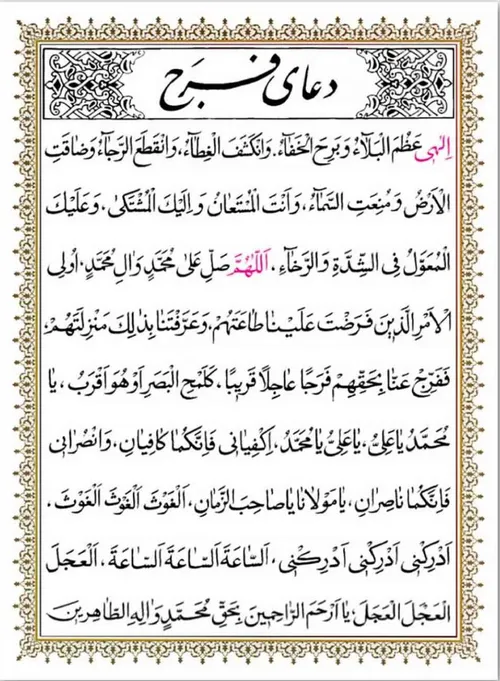 دعای فرج
اِلٰهی عَظُمَ الْبَلاٰءُ وَ بَرِحَ الْخَفٰاءُ، وَانْکَشَفَ الْغِطٰاءُ، وَانْقَطَعَ الرَّجٰاءُ وَ ضٰاقَتِ
الْاَرْضُ وَ مُنِعَتِ السَّمٰاءُ، وَ اَنْتَ الْمُسْتَعٰانُ وَ اِلَیْکَ الْمُشْتَکیٰ، وَ عَلَیْکَ
الْمُعَوَّلُ فِی الشِّدَّةِ وَ الرَّخٰاءِ، اَللّٰهُمَّ صَلِّ عَلیٰ مُحَمَّدٍ وَ اٰلِ مُحَمَّدٍ، اُولِی
الْاَمْرِ الَّذینَ فَرَضْتَ عَلَیْنٰا طٰاعَتَهُمْ، وَ عَرَّفْتَنٰا بِذٰلِکَ مَنْزِلَتَهُمْ،
فَفَرِّجْ عَنّٰا بِحَقِّهِمْ فَرَجًا عٰاجِلًا قَریبًا، کَلَمْحِ الْبَصَرِ اَوْ هُوَ اَقْرَبُ، یٰا
مُحَمَّدُ یٰا عَلِیُّ، یٰا عَلِیُّ یٰا مُحَمَّدُ، اِکْفِیٰانی فَاِنَّکُمٰا کٰافِیٰانِ، وَ انْصُرٰانی
فَاِنَّکُمٰا نٰاصِرٰانِ، یٰا مَوْلاٰنٰا یٰا صٰاحِبَ الزَّمٰانِ، اَلْغَوْثَ اَلْغَوْثَ الْغَوْثَ،
اَدْرِکْنی اَدْرِکْنی اَدْرِکْنی، اَلسّٰاعَةَ السّٰاعَةَ السّٰاعَةَ، اَلْعَجَلَ
الْعَجَلَ الْعَجَلَ، یٰا اَرْحَمَ الرّٰاحِمینَ بِحَقِّ مُحَمَّدٍ وَ اٰلِهِ الطّٰاهِرینَ